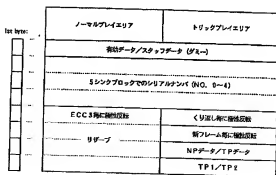 ノーマルプレイエリア
トリックプレイエリア
1st byte:
有効データ／スタッフデータ（ダミー）
5シンクブロックでのシリアルナンバ（NO. 0〜4）
ECC3毎に極性反転
くり返し毎に極性反転
新フレーム毎に極性反転
リザーブ
NPデータ／TPデータ
TP1／TP2